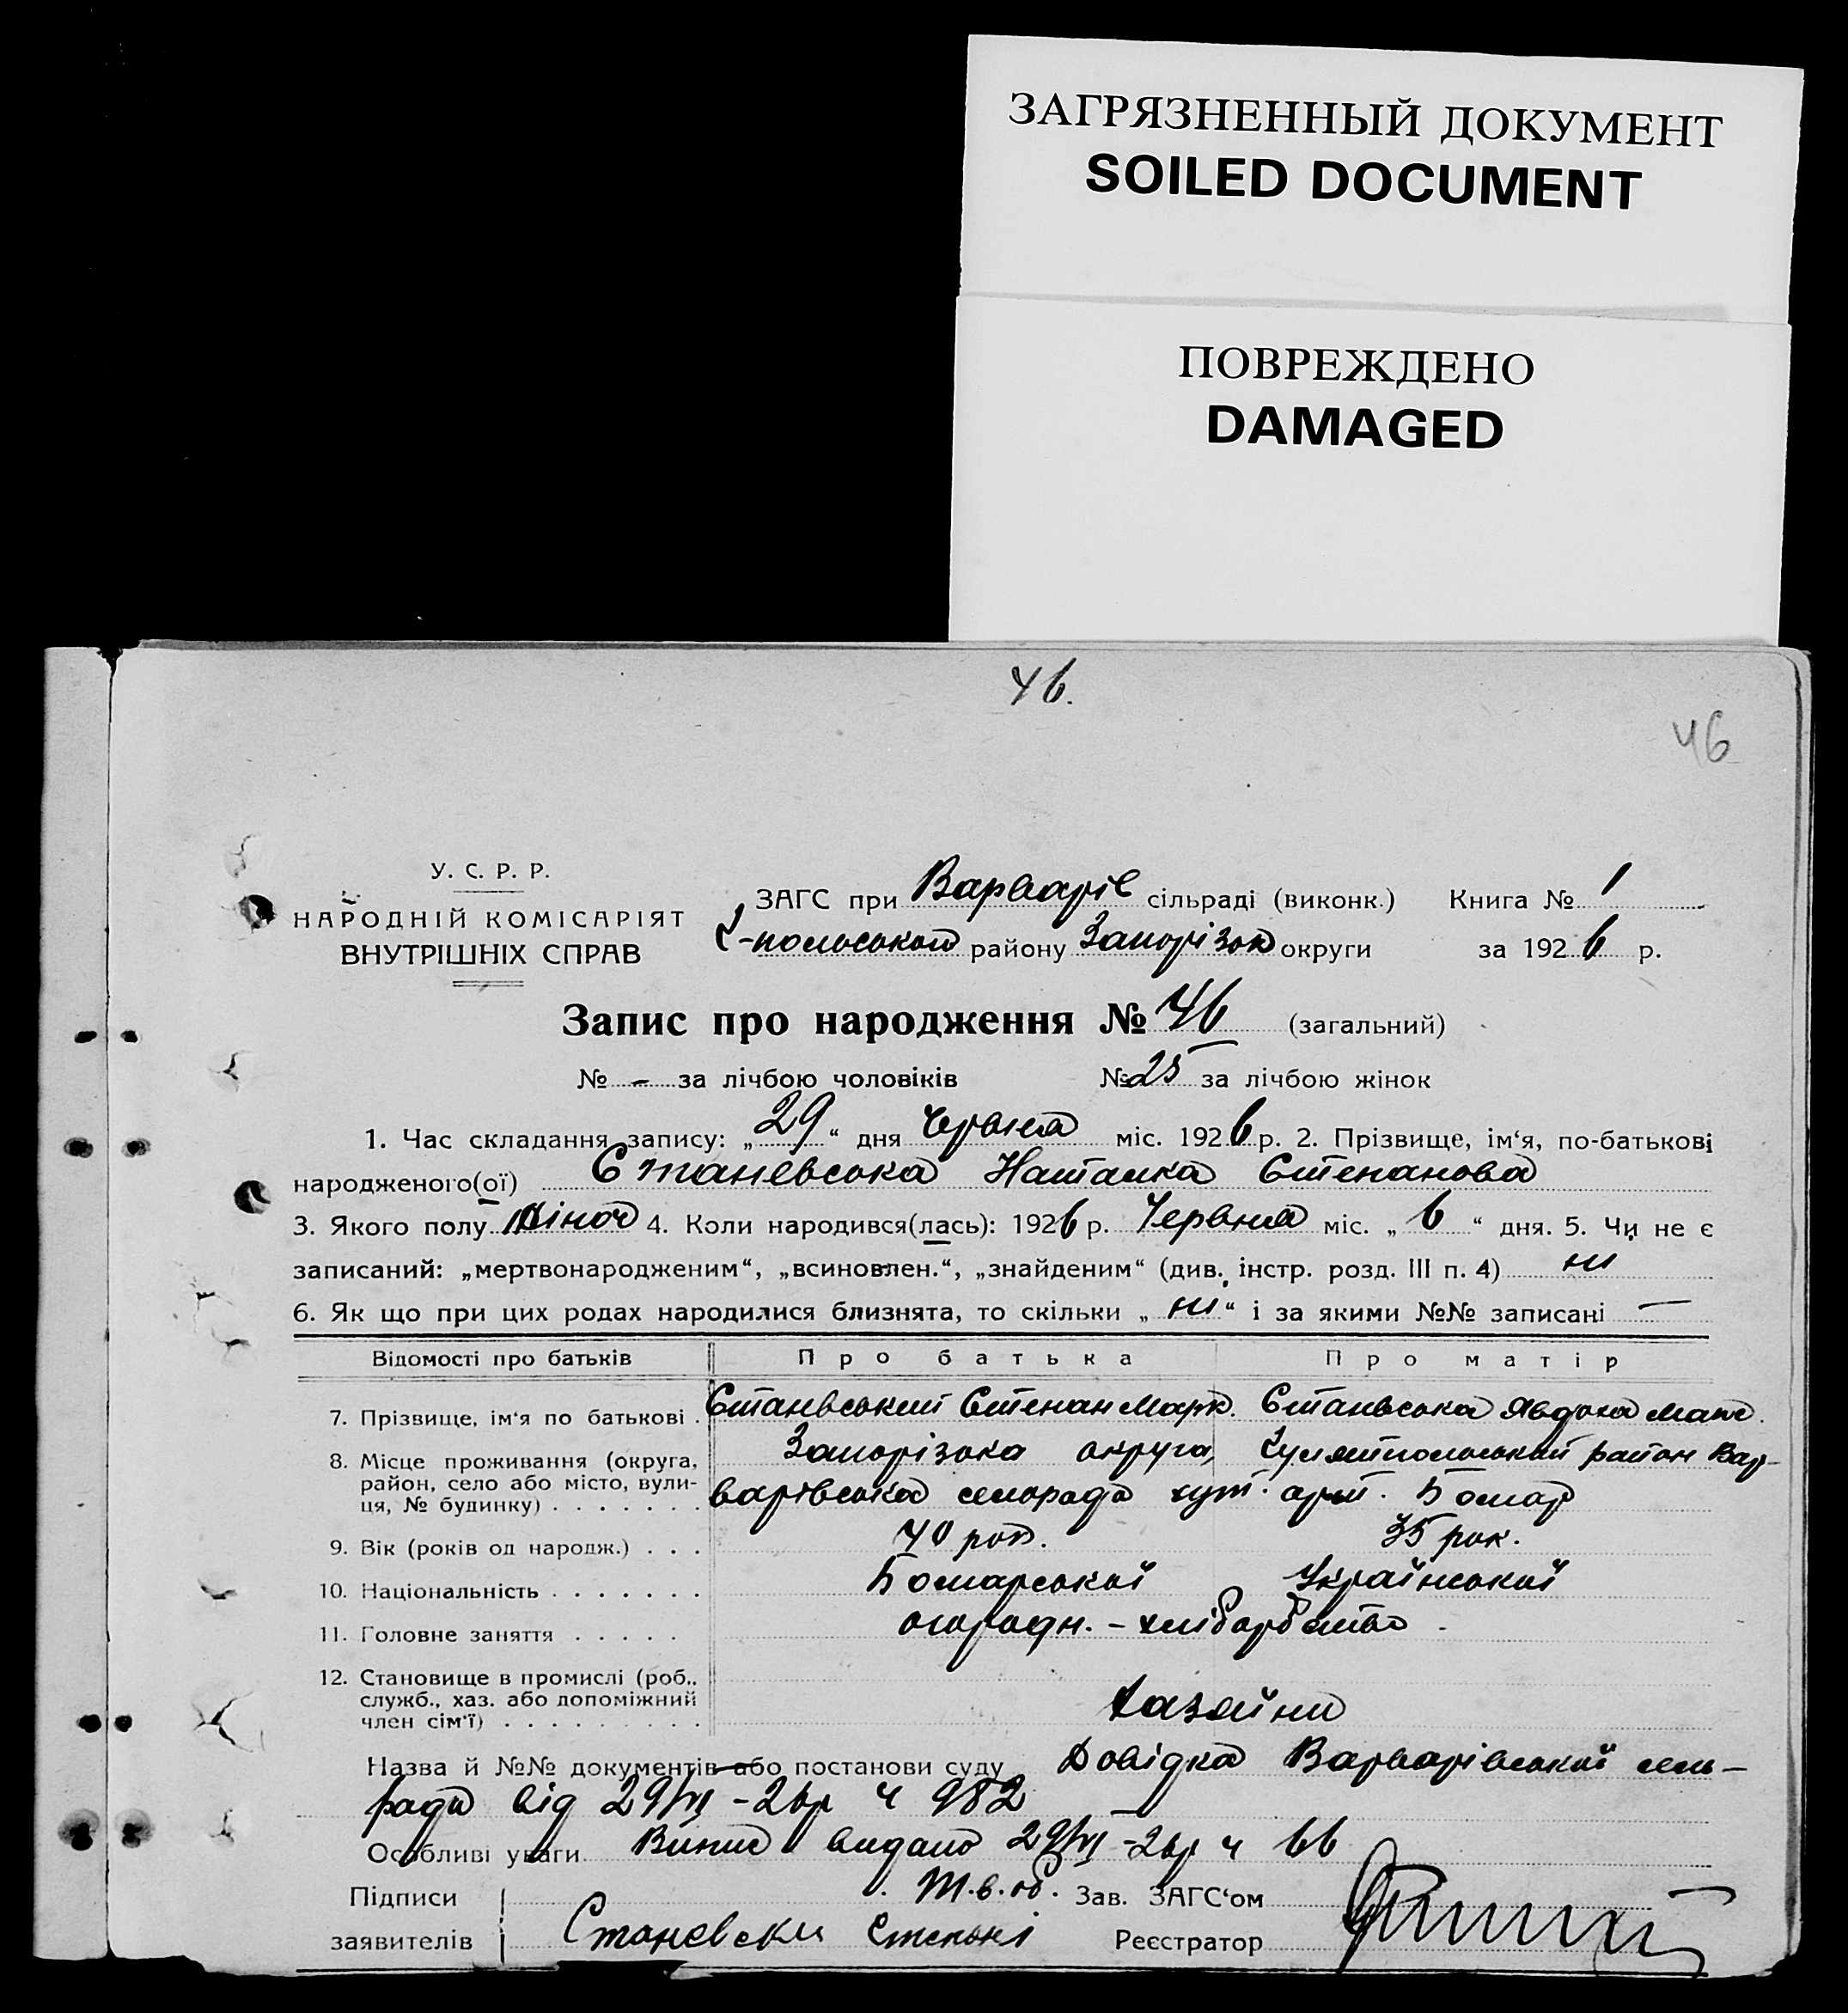 ЗАГРЯЗНЕННЫЙ ДОКУМЕНТ
SOILED DOCUMENT
ПОВРЕЖДЕНО
DAMAGED
46.
46
У. С. Р. Р.
НАРОДНІЙ КОМІСАРІЯТ
ВНУТРІШНІХ СПРАВ
ЗАГС при Варварів сільраді (виконк.) Книга № 1
-польського району Запорізьк округи за 1926 р.
Запис про народження № 46 (загальний)
№ - за лічбою чоловіків № 25 за лічбою жінок
1. Час складання запису: „29“ дня Червня міс. 1926 р. 2. Прізвище, ім‘я, по-батькові
народженого(ої) Станевська Наталка Степанова
3. Якого полу жіноч 4. Коли народився(лась): 1926 р. Червня міс. „6“ дня. 5. Чи не є
записаний: „мертвонародженим“, „всиновлен.“, „знайденим“ (див. інстр. розд. III п. 4) ні
6. Як що при цих родах народилися близнята, то скільки „ні“ і за якими №№ записані —
Відомості про батьків Про батька Про матір
7. Прізвище, ім‘я по батькові . Станвський Степан Марк. Станвська Явдоха
8. Місце проживання (округа, район, село або місто, вулиця, № будинку) . . . . . . . Запорізька округа, Гуляйпольський район Вар-
варівська сельрада хут. арт. Болгар
9. Вік (років од народж.) . . . 40 рок. 35 рок.
10. Національність . . . . . . . Болгарської Української
11. Головне заняття . . . . . огородн. - хліборобство
12. Становище в промислі (роб., служб., хаз. або допоміжний член сім‘ї) . . . . . . . . . хазяїни
Назва й №№ документів або постанови суду Довідка Варварівської сель-
ради від 29/VI - 26р ч 982
Особливі уваги Випис видано 29/VI - 26р ч 66
Підписи Т.в.об. Зав. ЗАГС‘ом
заявителів Станевски Реєстратор